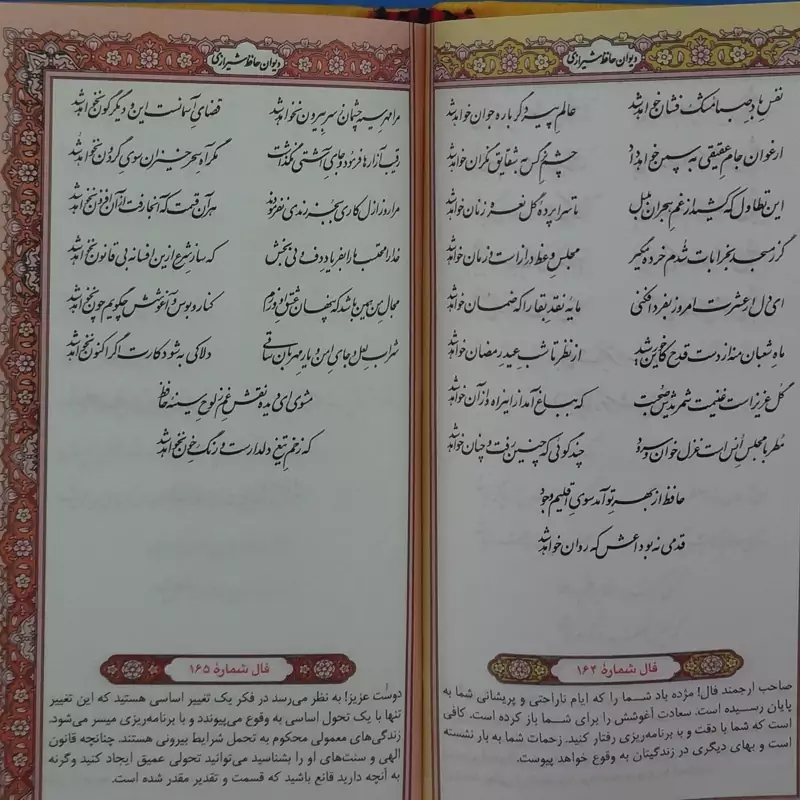 دیوان حافظ شیرازی
نفس باد صبا مشک فشان خواهد شد
عالم پیر دگر باره جوان خواهد شد
ارغوان جام عقیقی به سمن خواهد داد
چشم نرگس به شقایق نگران خواهد شد
این تطاول که کشید از غم هجران بلبل
تا سراپردهٔ گل نعره زنان خواهد شد
گر ز مسجد به خرابات شدم خرده مگیر
مجلس وعظ دراز است و زمان خواهد شد
ای دل ار عشرت امروز به فردا فکنی
مایهٔ نقد بقا را که ضمان خواهد شد
ماه شعبان منه از دست قدح کاین خورشید
از نظر تا شب عید رمضان خواهد شد
گل عزیز است غنیمت شمریدش صحبت
که به باغ آمد از این راه و از آن خواهد شد
مطربا مجلس انس است غزل خوان و سرود
چند گوئی که چنین رفت و چنان خواهد شد
حافظ از بهر تو آمد سوی اقلیم وجود
قدمی نه به وداعش که روان خواهد شد
فال شمارهٔ ۱۶۴
صاحب ارجمند فال! مژده باد شما را که ایام ناراحتی و پریشانی شما به
پایان رسیده است. سعادت آغوشش را برای شما باز کرده است. کافی
است که شما با دقت و با برنامه‌ریزی رفتار کنید. زحمات شما به بار نشسته
است و بهای دیگری در زندگیتان به وقوع خواهد پیوست.
دیوان حافظ شیرازی
مرا مهر سیه چشمان ز سر بیرون نخواهد شد
قضای آسمانست این و دیگرگون نخواهد شد
رقیب آزارها فرمود و جای آشتی نگذاشت
مگر آه سحرخیزان سوی گردون نخواهد شد
مرا روز ازل کاری بجز رندی نفرمودند
هر آن قسمت که آنجا رفت از آن افزون نخواهد شد
خدا را محتسب ما را به فریاد دف و نی بخش
که ساز شرع ازین افسانه بی قانون نخواهد شد
مجال من همین باشد که پنهان عشق او ورزم
کنار و بوس و آغوشش چگویم چون نخواهد شد
شراب لعل و جای امن و یار مهربان ساقی
دلا کی به شود کارت اگر اکنون نخواهد شد
مشوی ای دیده نقش غم ز لوح سینهٔ حافظ
که زخم تیغ دلدارست و رنگ خون نخواهد شد
فال شمارهٔ ۱۶۵
دوست عزیز! به نظر می‌رسد در فکر یک تغییر اساسی هستید که این تغییر
تنها با یک تحول اساسی به وقوع می‌پیوندد و با برنامه‌ریزی میسر می‌شود.
زندگی‌های معمولی محکوم به تحمل شرایط بیرونی هستند. چنانچه قانون
الهی و سنت‌های او را بشناسید می‌توانید تحولی عمیق ایجاد کنید وگرنه
به آنچه دارید قانع باشید که قسمت و تقدیر مقدر شده است.